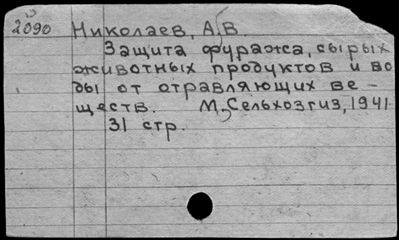 2090 Николаев, А.В.
Защита фуража, сырых
животных продуктов и во
ды от отравляющих ве-
ществ. М, Сельхозгиз, 1941
31 стр.